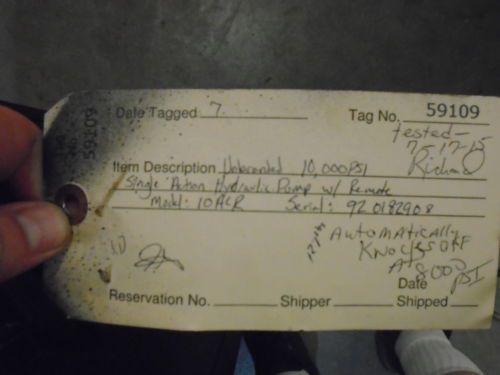 Date Tagged 7
Tag No. 59109
59109
tested -
7-17-15
Richard
Item Description Unbranded 10,000 PSI
Single Action Hydraulic Pump w/ Remote
Model: 10ACR Serial: 920182908
AUTOMATICALLY
KNOCKS OFF
AT 8000
PSI
Reservation No. Shipper Date Shipped